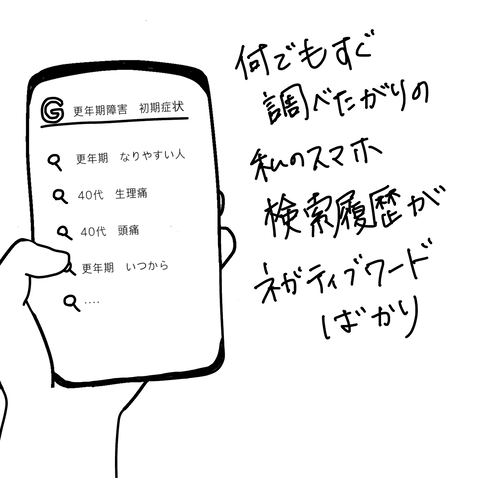 G 更年期障害 初期症状
更年期 なりやすい人
40代 生理痛
40代 頭痛
更年期 いつから
....
何でもすぐ
調べたがりの
私のスマホ
検索履歴が
ネガティブワード
ばかり